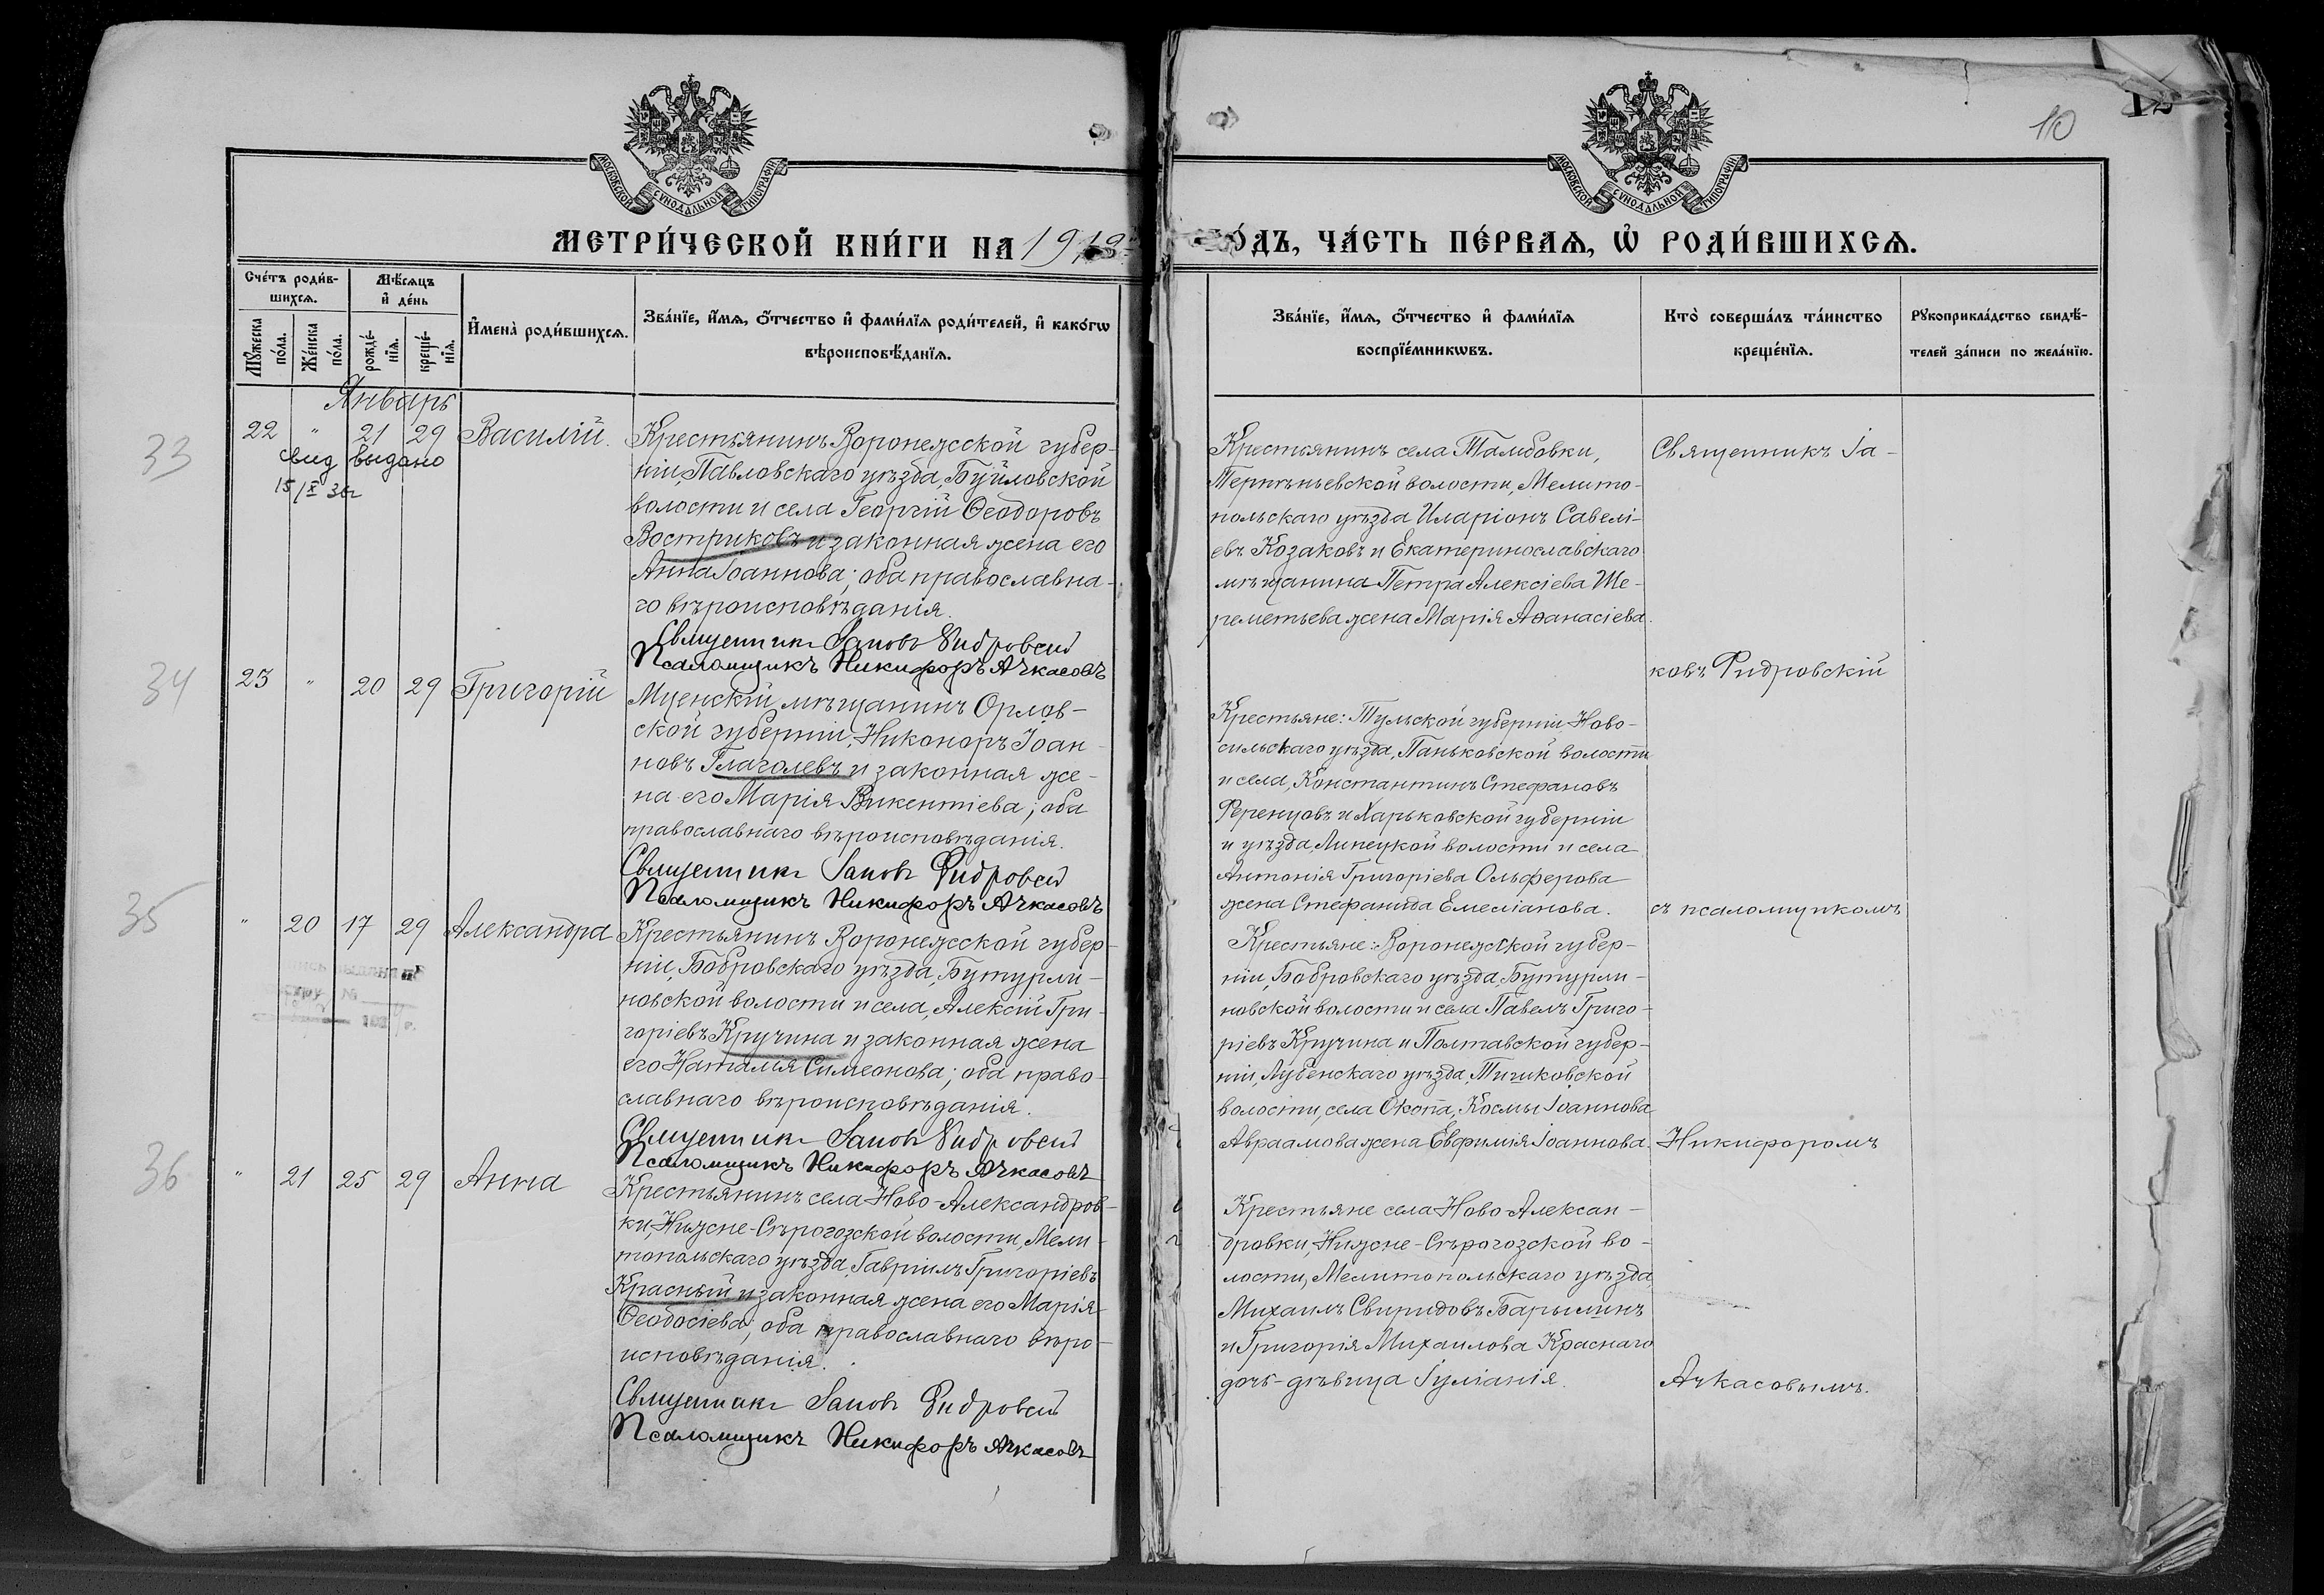 10
12
МОСКОВСКОЙ СѴНОДАЛЬНОЙ ТИПОГРАФІИ
МОСКОВСКОЙ СѴНОДАЛЬНОЙ ТИПОГРАФІИ
МЕТРИ́ЧЕСКОЙ КНИ́ГИ НА 1912
ГО́ДЪ, ЧА́СТЬ ПЕ́РВАЯ, Ѡ҆ РОДИ́ВШИХСЯ.
Сче́тъ роди́в-
шихся.
Мѣ́сяцъ
и҆ де́нь
Мꙋ́жеска
по́ла.
Же́нска
по́ла.
рожде́-
нїя.
креще́-
нїя.
И҆мена̀ роди́вшихся.
Зва́нїе, и҆́мя, ѻ҆́тчество и҆ фами́лїя роди́телей, и҆ како́гѡ
вѣроисповѣ́данїя.
Зва́нїе, и҆́мя, ѻ҆́тчество и҆ фами́лїя
воспрїе́мникѡвъ.
Кто̀ соверша́лъ та́инство
креще́нїя.
Рꙋкоприкла́дство свидѣ́-
телей за́писи по жела́нїю.
Январь
33
22 " 21 29 Василій.
свид выдано
15/X 36г
Крестьянинъ Воронежской губер-
ніи, Павловскаго уѣзда, Буйловской
волости и села Георгій Ѳеодоровъ
Востриковъ и законная жена его
Анна Іоаннова; оба православна-
го вѣроисповѣданія.
Священникъ Іаковъ Ридровскій
Псаломщикъ Никифоръ Ачкасовъ
Крестьянинъ села Тамбовки,
Терпѣньевской волости, Мелито-
польскаго уѣзда Иларіонъ Савелі-
евъ Козаковъ и Екатеринославскаго
мѣщанина Петра Алексіева Ше-
реметьева жена Марія Аѳанасіева.
Священникъ Іа-
34
23 " 20 29 Григорій
Мценскій мѣщанинъ Орлов-
ской губерніи, Никоноръ Іоан-
новъ Глаголевъ и законная же-
на его Марія Викентіева; оба
православнаго вѣроисповѣданія.
Священникъ Іаковъ Ридровскій
Псаломщикъ Никифоръ Ачкасовъ
Крестьяне: Тульской губерніи Ново-
сильскаго уѣзда, Паньковской волости
и села, Константинъ Стефановъ
Ференцовъ и Харьковской губерніи
и уѣзда, Липецкой волости и села
Антонія Григоріева Ольферова
жена Стефанида Емеліанова.
ковъ Ридровскій
35
" 20 17 29 Александра
Крестьянинъ Воронежской губер-
ніи, Бобровскаго уѣзда, Бутурли-
новской волости и села, Алексій Гри-
горіевъ Кручина и законная жена
его Наталія Симеонова; оба право-
славнаго вѣроисповѣданія.
Священникъ Іаковъ Ридровскій
Псаломщикъ Никифоръ Ачкасовъ
Крестьяне: Воронежской губер-
ніи, Бобровскаго уѣзда, Бутурли-
новской волости и села Павелъ Григо-
ріевъ Кручина и Полтавской губер-
ніи, Лубенскаго уѣзда, Тишковской
волости, села Окопа, Космы Іоаннова
Авраамова жена Евфимія Іоаннова.
съ псаломщикомъ
Никифоромъ
36
" 21 25 29 Анна
Крестьянинъ села Ново-Александров-
ки, Нижне-Сѣрогозской волости, Мели-
топольскаго уѣзда, Гавріилъ Григоріевъ
Красный и законная жена его Марія
Ѳеодосіева; оба православнаго вѣро-
исповѣданія.
Священникъ Іаковъ Ридровскій
Псаломщикъ Никифоръ Ачкасовъ
Крестьяне села Ново-Алексан-
дровки, Нижне-Сѣрогозской во-
лости, Мелитопольскаго уѣзда,
Михаилъ Свиридовъ Барылинъ
и Григорія Михаилова Краснаго
дочь-дѣвица Іуліанія.
Ачкасовымъ.